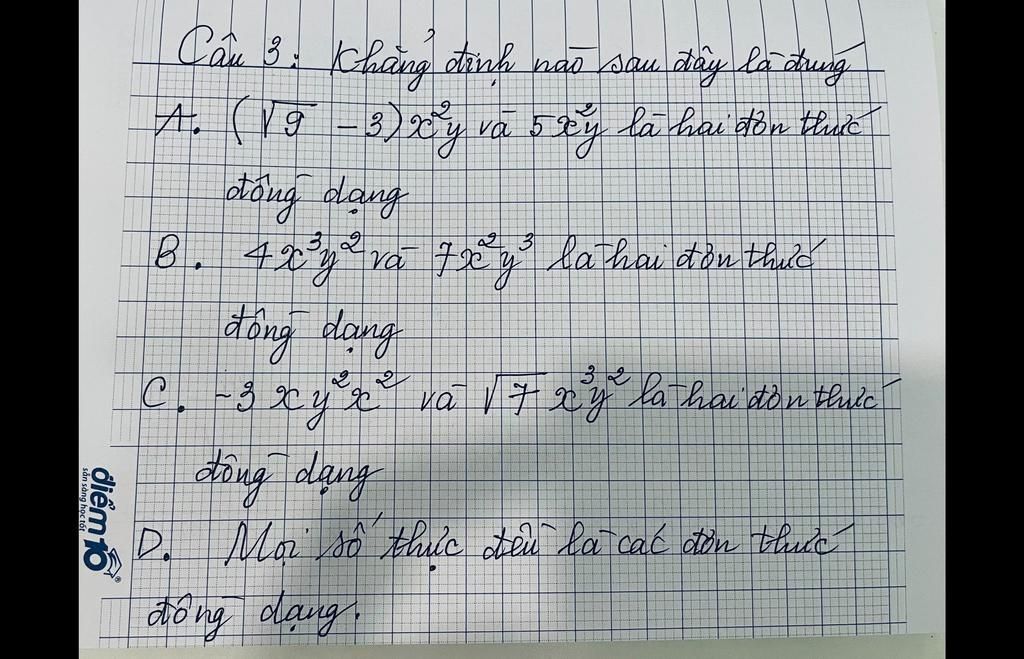 Câu 3: Khẳng định nào sau đây là đúng
A. (√9 - 3)x²y và 5x²y là hai đơn thức
đồng dạng
B. 4x³y² và 7x²y³ là hai đơn thức
đồng dạng
C. -3xy²x² và √7 x³y² là hai đơn thức
đồng dạng
D. Mọi số thực đều là các đơn thức
đồng dạng.
điểm 10
sẵn sàng học tốt